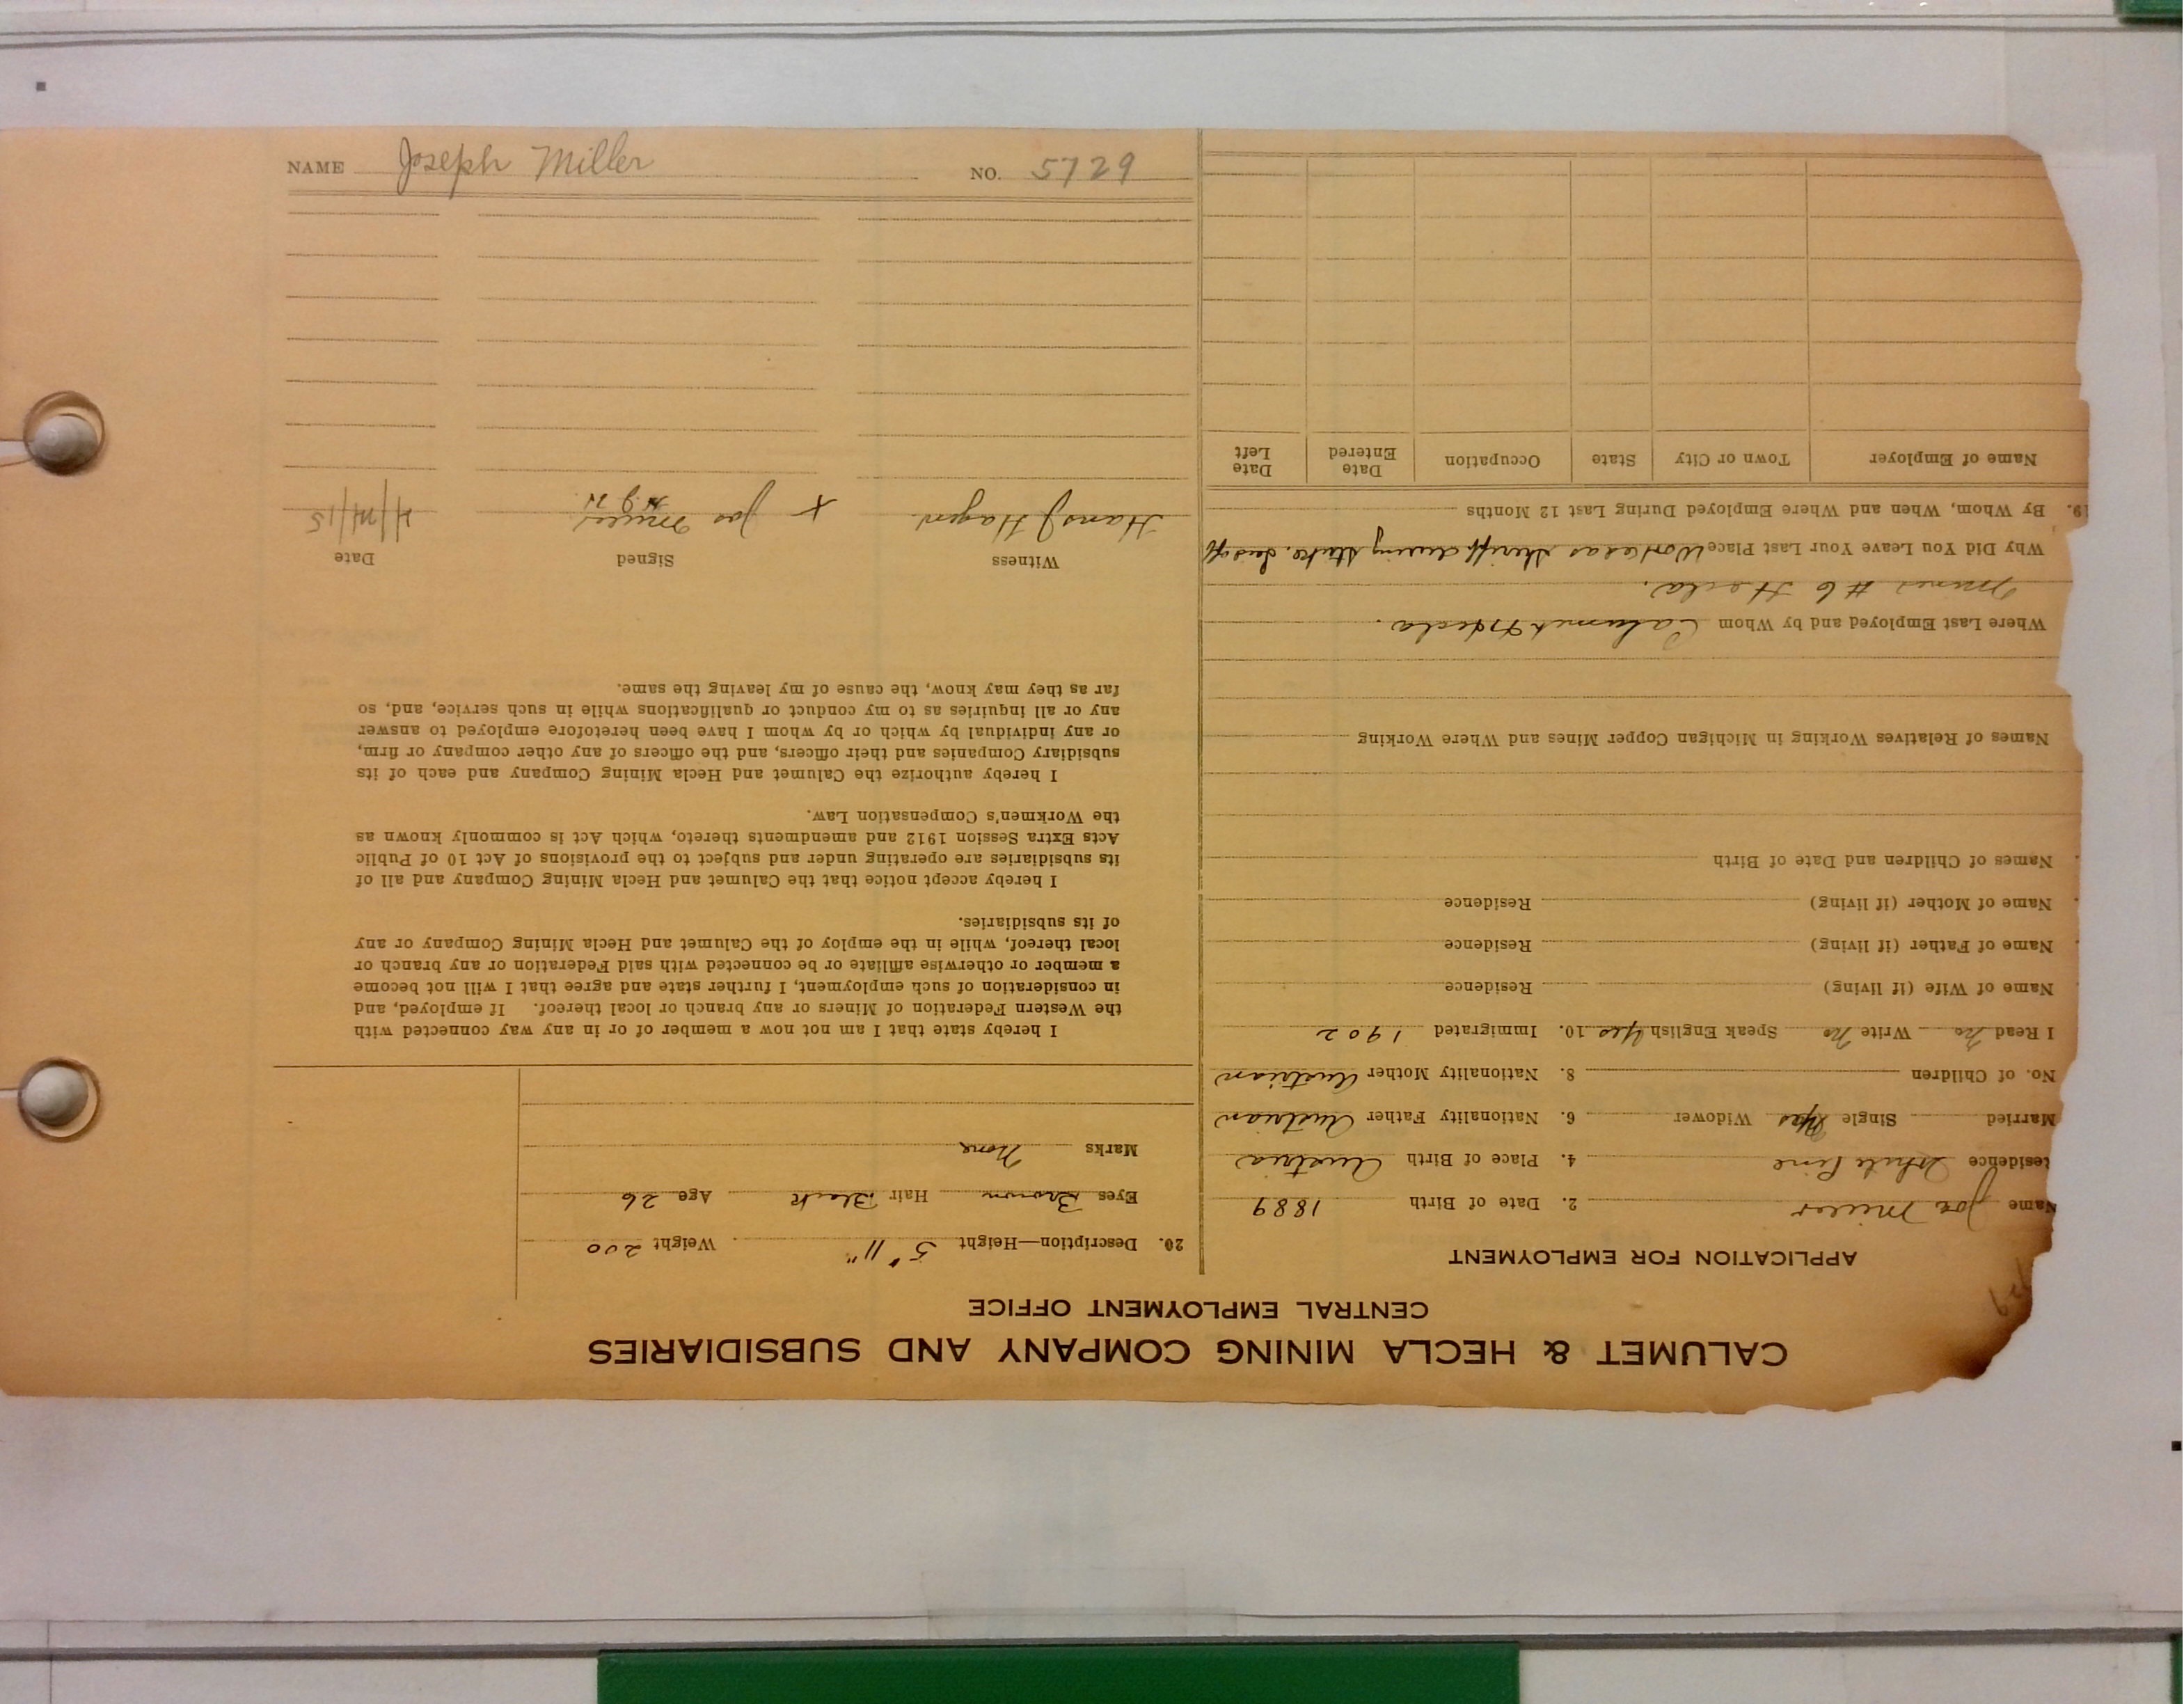 CALUMET & HECLA MINING COMPANY AND SUBSIDIARIES
CENTRAL EMPLOYMENT OFFICE
APPLICATION FOR EMPLOYMENT
Name Joe Miller 2. Date of Birth 1889
Residence White Pine 4. Place of Birth Austria
Married Single Yes Widower 6. Nationality Father Austrian
No. of Children 8. Nationality Mother Austrian
I Read No Write No Speak English Yes 10. Immigrated 1902
Name of Wife (if living) Residence
Name of Father (if living) Residence
Name of Mother (if living) Residence
Names of Children and Date of Birth
Names of Relatives Working in Michigan Copper Mines and Where Working
Where Last Employed and by Whom Calumet & Hecla.
#6 Hecla.
Why Did You Leave Your Last Place Worked as sheriff during strike. Laid off
19. By Whom, When and Where Employed During Last 12 Months
Name of Employer Town or City State Occupation Date Entered Date Left
20. Description—Height 5' 11" Weight 200
Eyes Brown Hair Black Age 26
Marks None
I hereby state that I am not now a member of or in any way connected with
the Western Federation of Miners or any branch or local thereof. If employed, and
in consideration of such employment, I further state and agree that I will not become
a member or otherwise affiliate or be connected with said Federation or any branch or
local thereof, while in the employ of the Calumet and Hecla Mining Company or any
of its subsidiaries.
I hereby accept notice that the Calumet and Hecla Mining Company and all of
its subsidiaries are operating under and subject to the provisions of Act 10 of Public
Acts Extra Session 1912 and amendments thereto, which Act is commonly known as
the Workmen's Compensation Law.
I hereby authorize the Calumet and Hecla Mining Company and each of its
subsidiary Companies and their officers, and the officers of any other company or firm,
or any individual by which or by whom I have been heretofore employed to answer
any or all inquiries as to my conduct or qualifications while in such service, and, so
far as they may know, the cause of my leaving the same.
Witness Signed Date
Hans J Hagen X Joe Miller
NAME Joseph Miller NO. 5729